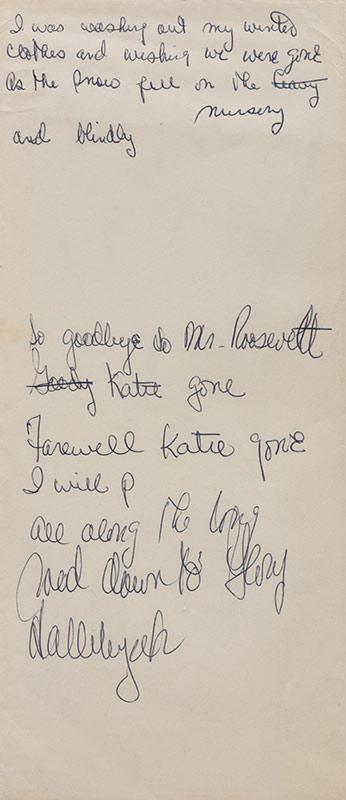 I was washing out my winter
clothes and wishing we were gone
as the snow fell on the
nursery
and blindly
So goodbye to Mr. Roosevelt
Katie gone
Farewell Katie gone
I will p
all along the long
road down to Glory
Hallelujah